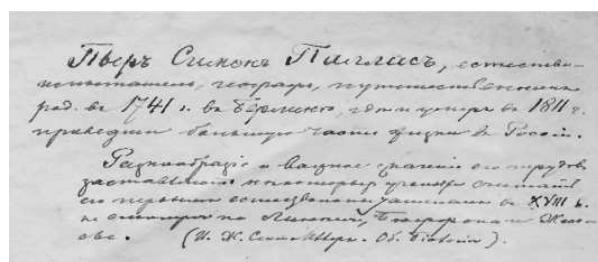 Петръ Симонъ Палласъ, естество-
испытатель, географъ, путешественникъ
род. въ 1741 г. въ Берлинѣ, гдѣ и умеръ въ 1811 г.
проведши большую часть жизни въ Россіи.
Разнообразіе и важное значеніе его трудовъ
заставляютъ некоторыхъ ученыхъ считать
его первымъ въ XVIII в.
не смотря на Линнея,
(И. Ж. Об. Біологія).